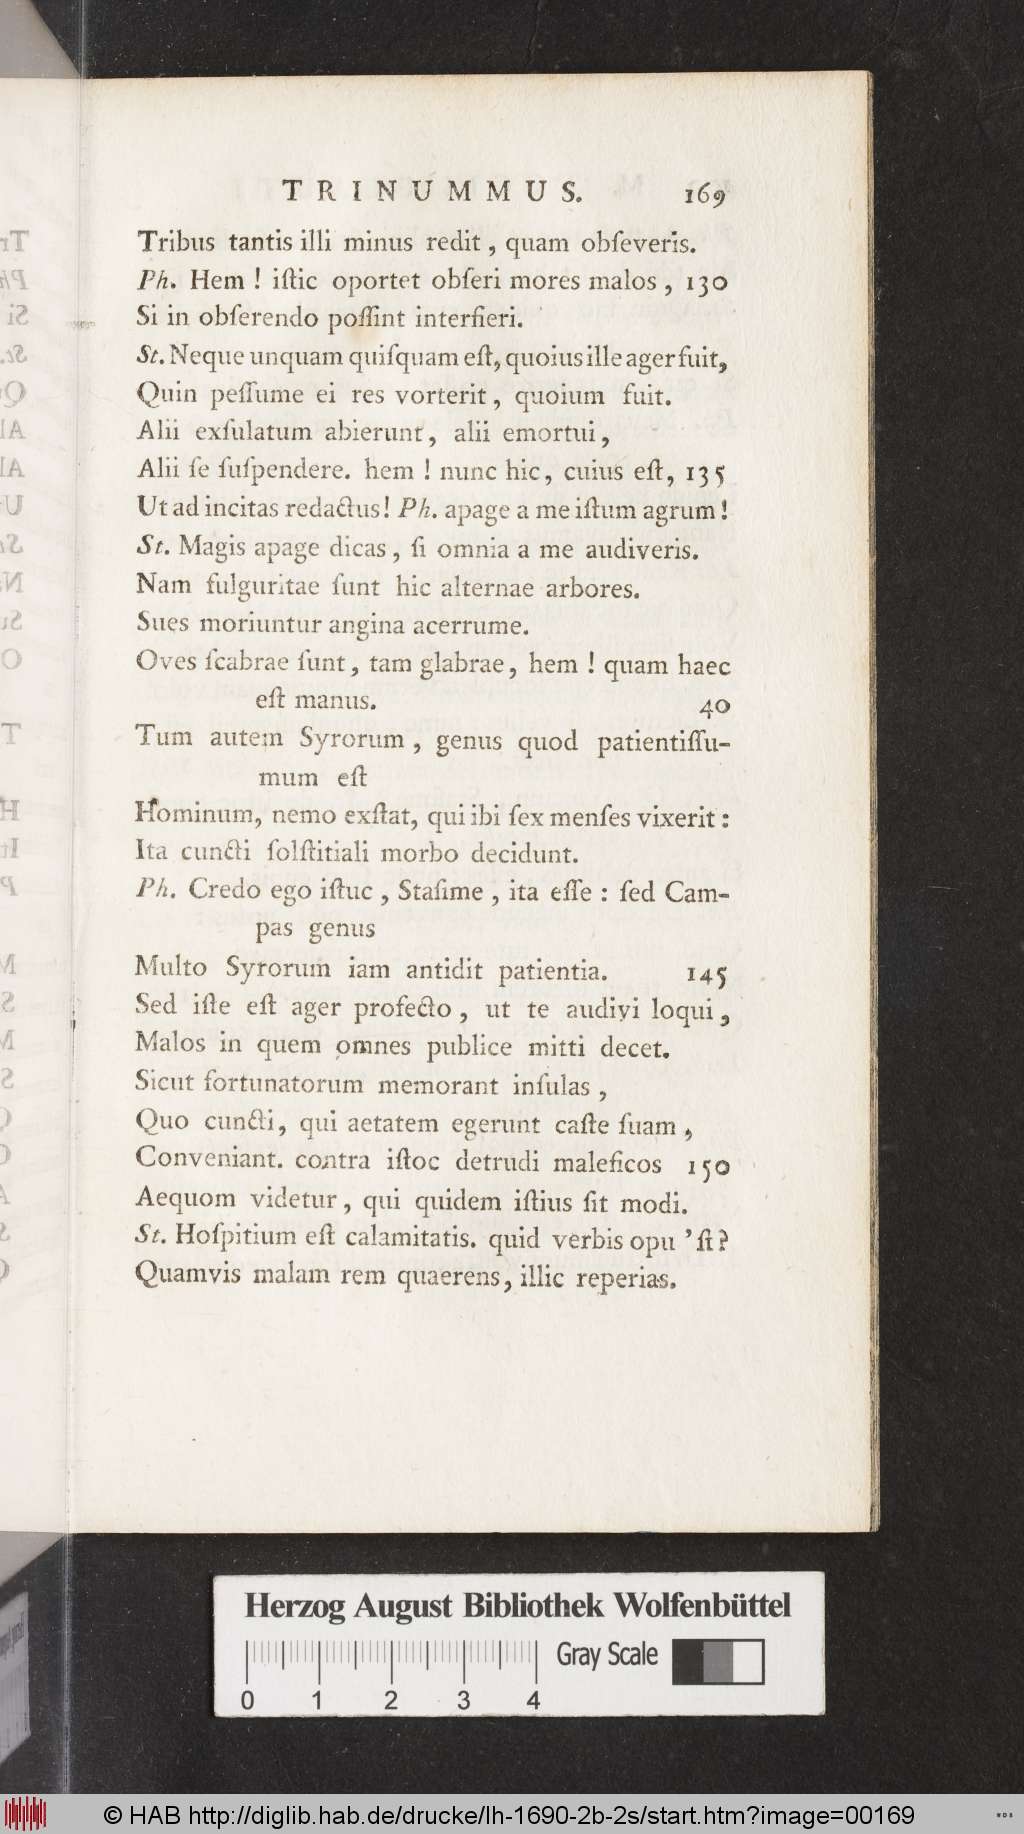 TRINUMMUS. 169
Tribus tantis illi minus redit, quam obſeveris.
Ph. Hem! iſtic oportet obſeri mores malos, 130
Si in obſerendo poſſint interfieri.
St. Neque unquam quiſquam eſt, quoius ille ager fuit,
Quin peſſume ei res vorterit, quoium fuit.
Alii exſulatum abierunt, alii emortui,
Alii ſe ſuſpendere. hem! nunc hic, cuius eſt, 135
Ut ad incitas redactus! Ph. apage a me iſtum agrum!
St. Magis apage dicas, ſi omnia a me audiveris.
Nam fulguritae ſunt hic alternae arbores.
Sues moriuntur angina acerrume.
Oves ſcabrae ſunt, tam glabrae, hem! quam haec
eſt manus. 40
Tum autem Syrorum, genus quod patientiſſu-
mum eſt
Hominum, nemo exſtat, qui ibi ſex menſes vixerit:
Ita cuncti ſolſtitiali morbo decidunt.
Ph. Credo ego iſtuc, Staſime, ita eſſe: ſed Cam-
pas genus
Multo Syrorum iam antidit patientia. 145
Sed iſte eſt ager profecto, ut te audivi loqui,
Malos in quem omnes publice mitti decet.
Sicut fortunatorum memorant inſulas,
Quo cuncti, qui aetatem egerunt caſte ſuam,
Conveniant. contra iſtoc detrudi maleficos 150
Aequom videtur, qui quidem iſtius ſit modi.
St. Hoſpitium eſt calamitatis. quid verbis opu 'ſt?
Quamvis malam rem quaerens, illic reperias.
Herzog August Bibliothek Wolfenbüttel
Gray Scale
0 1 2 3 4
© HAB http://diglib.hab.de/drucke/lh-1690-2b-2s/start.htm?image=00169